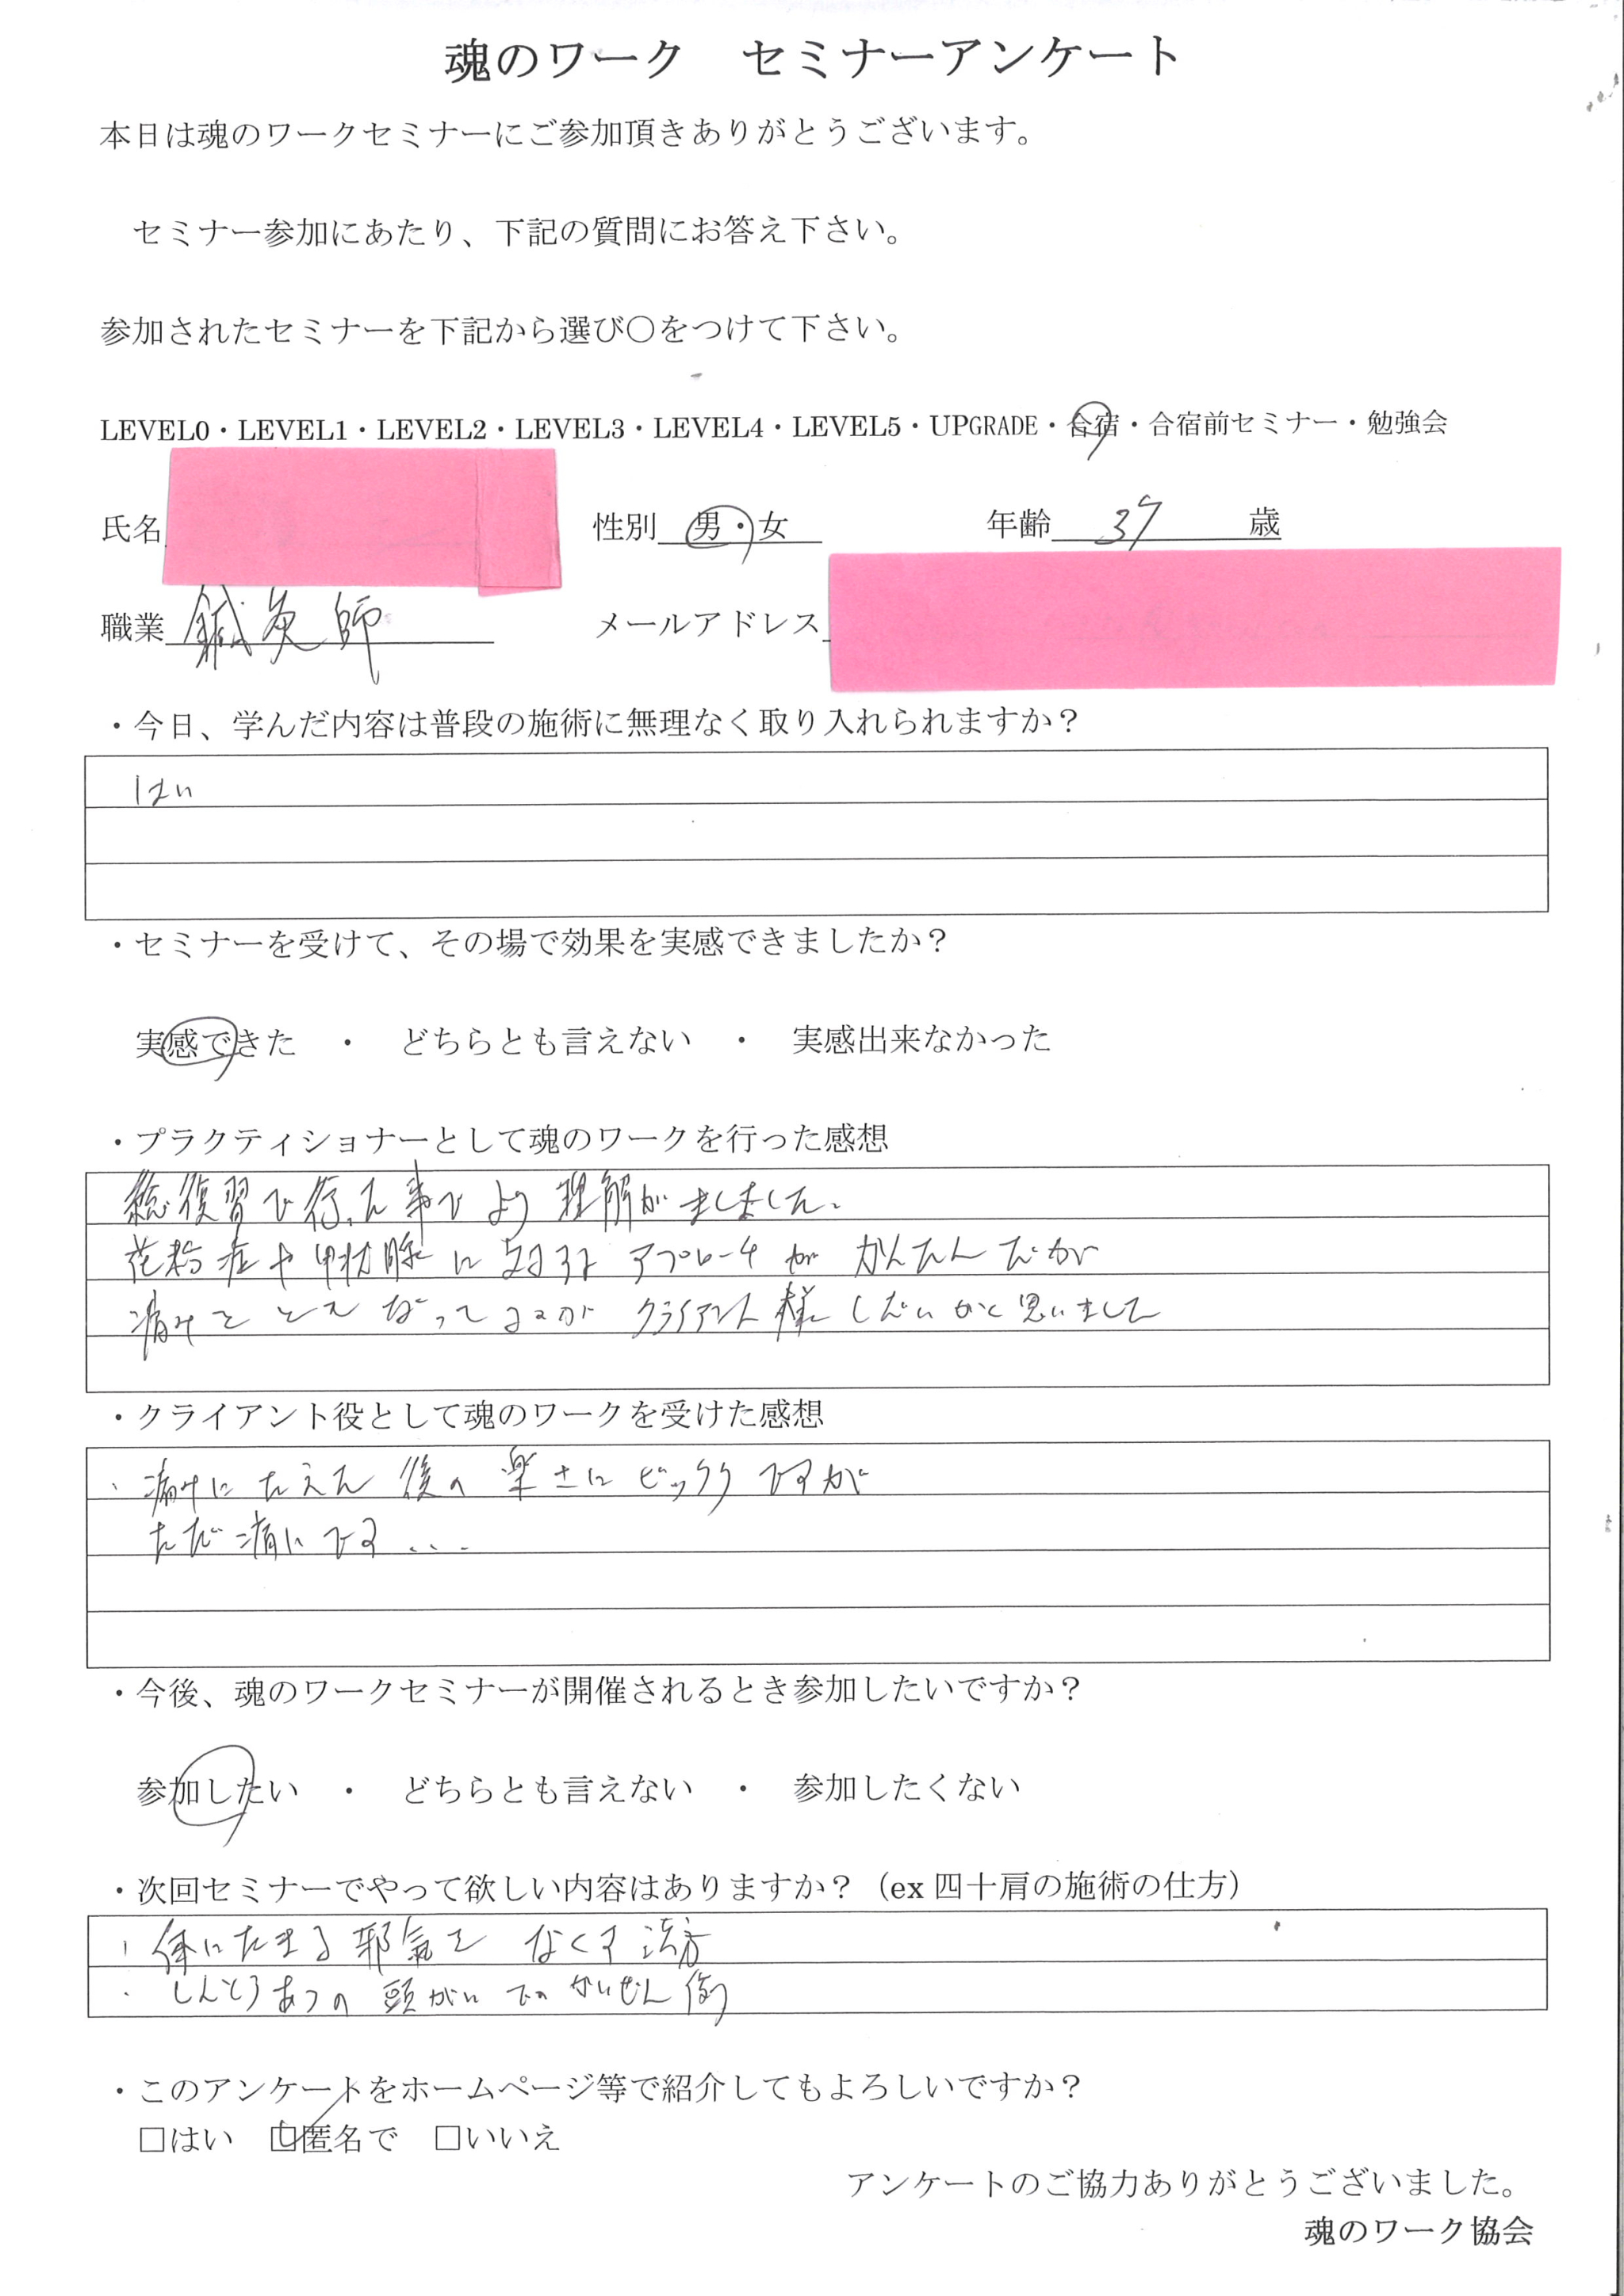 魂のワーク　セミナーアンケート
本日は魂のワークセミナーにご参加頂きありがとうございます。
セミナー参加にあたり、下記の質問にお答え下さい。
参加されたセミナーを下記から選び〇をつけて下さい。
LEVEL0・LEVEL1・LEVEL2・LEVEL3・LEVEL4・LEVEL5・UPGRADE・合宿・合宿前セミナー・勉強会
氏名　性別　男・女　年齢　37　歳
職業　鍼灸師　メールアドレス
・今日、学んだ内容は普段の施術に無理なく取り入れられますか？
はい
・セミナーを受けて、その場で効果を実感できましたか？
実感できた　・　どちらとも言えない　・　実感出来なかった
・プラクティショナーとして魂のワークを行った感想
総復習で行った事でより理解がましました。
花粉症や甲状腺に対するアプローチがかんたんだが
痛みをともなってるのがクライアント様しだいかと思いました
・クライアント役として魂のワークを受けた感想
・痛みにたえた後の楽さにビックリですが
ただ痛いです...
・今後、魂のワークセミナーが開催されるとき参加したいですか？
参加したい　・　どちらとも言えない　・　参加したくない
・次回セミナーでやって欲しい内容はありますか？（ex 四十肩の施術の仕方）
・体にたまる邪気をなくす法方
・しんとうあつの頭がいでのかいぜん
・このアンケートをホームページ等で紹介してもよろしいですか？
□はい　□匿名で　□いいえ
アンケートのご協力ありがとうございました。
魂のワーク協会